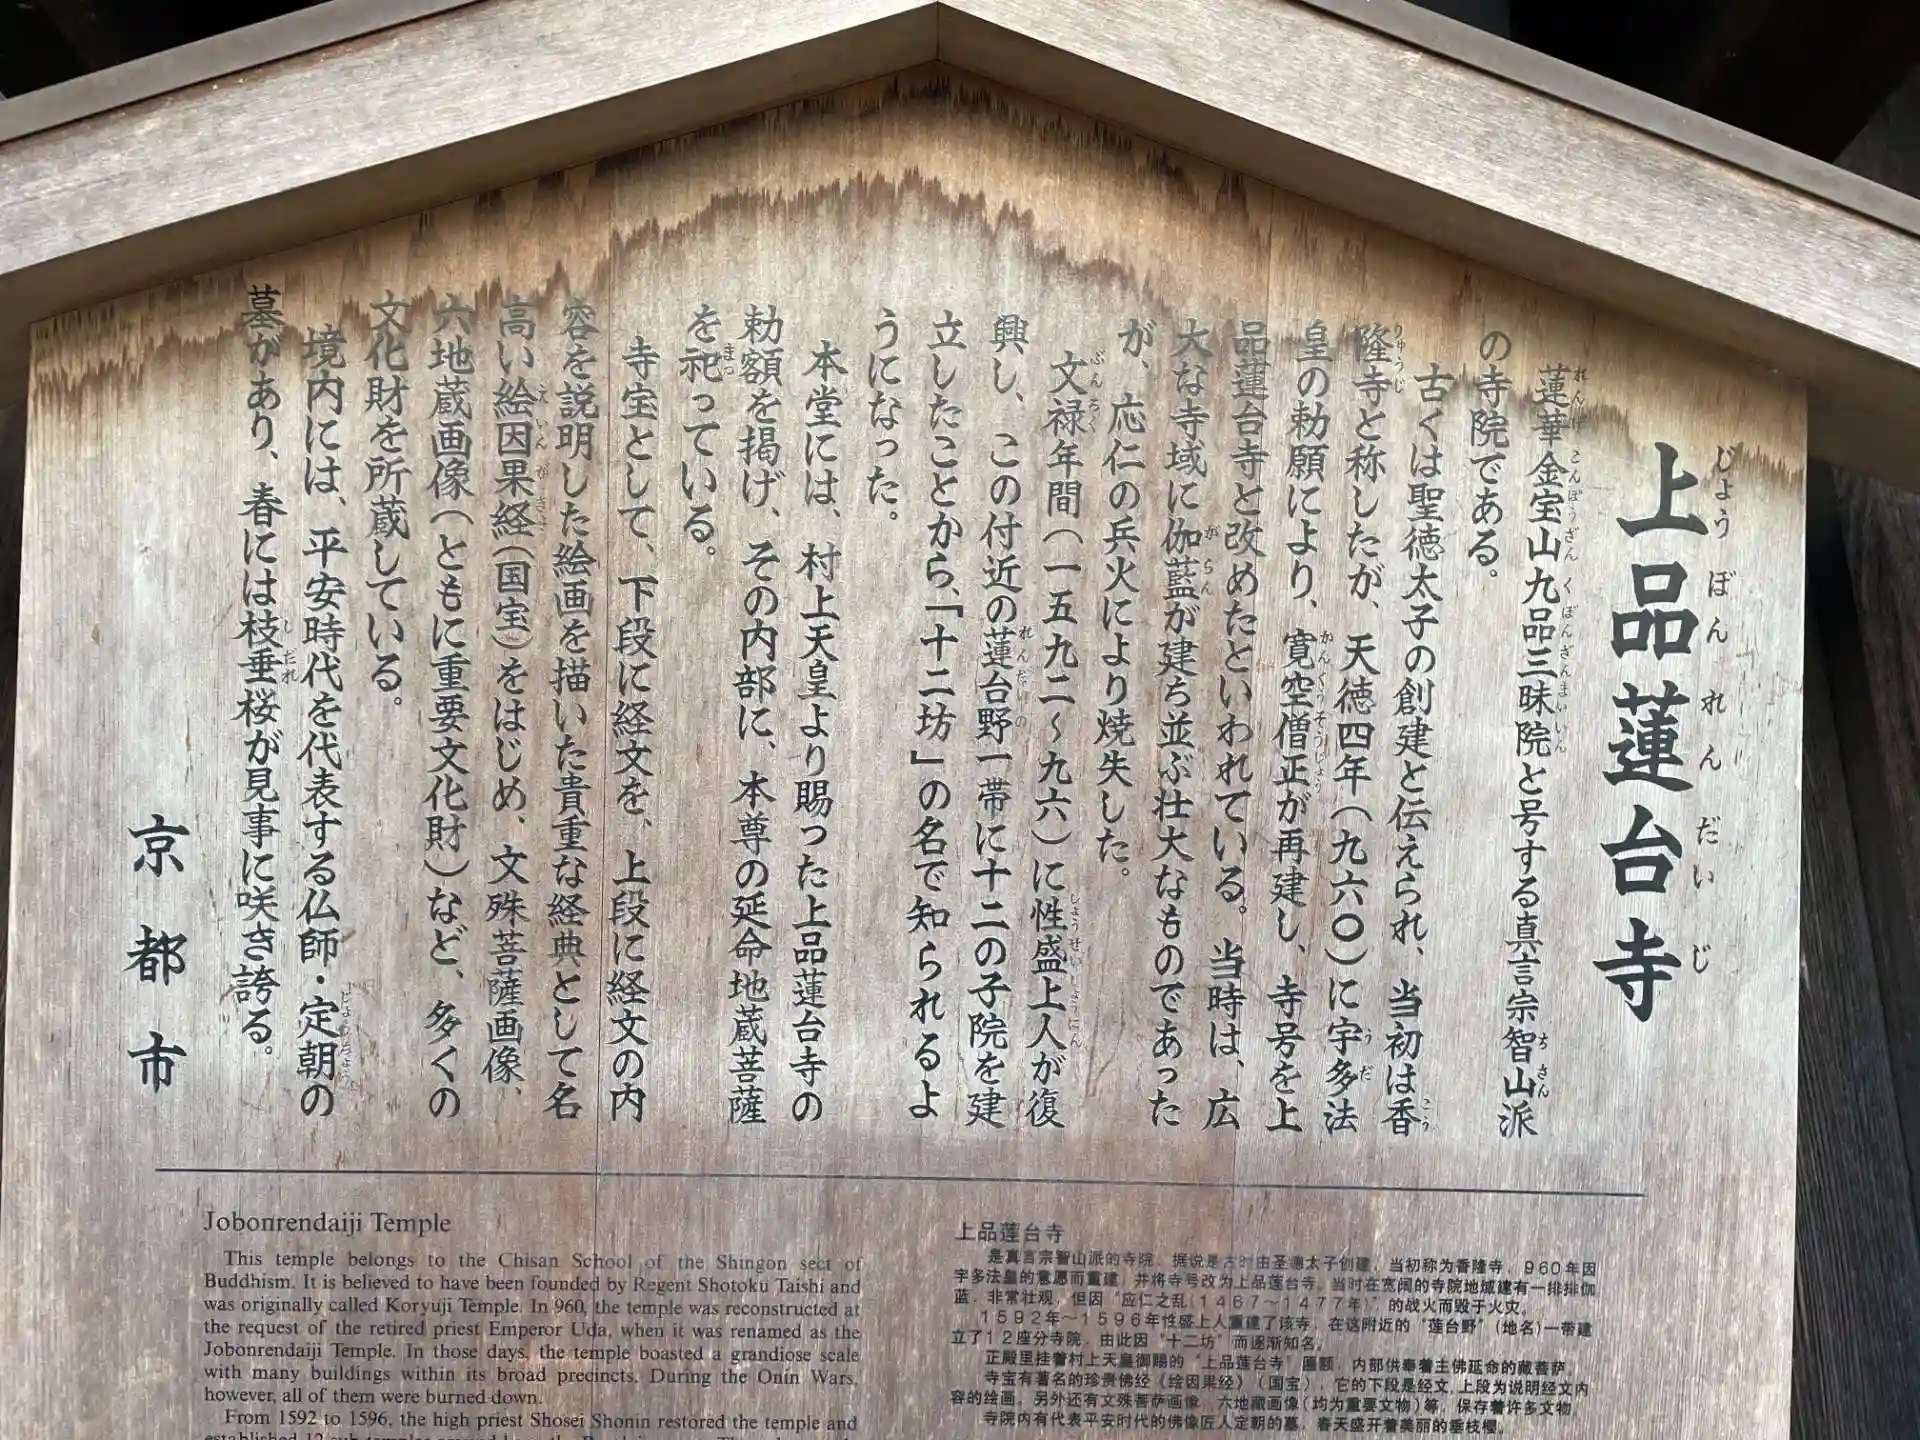 上品蓮台寺
じょうぼんれんだいじ
蓮華金宝山九品三昧院と号する真言宗智山派
の寺院である。
古くは聖徳太子の創建と伝えられ、当初は香
隆寺と称したが、天徳四年（九六〇）に宇多法
皇の勅願により、寛空僧正が再建し、寺号を上
品蓮台寺と改めたといわれている。当時は、広
大な寺域に伽藍が建ち並ぶ壮大なものであった
が、応仁の兵火により焼失した。
文禄年間（一五九二～九六）に性盛上人が復
興し、この付近の蓮台野一帯に十二の子院を建
立したことから、「十二坊」の名で知られるよ
うになった。
本堂には、村上天皇より賜った上品蓮台寺の
勅額を掲げ、その内部に、本尊の延命地蔵菩薩
を祀っている。
寺宝として、下段に経文を、上段に経文の内
容を説明した絵画を描いた貴重な経典として名
高い絵因果経（国宝）をはじめ、文殊菩薩画像、
六地蔵画像（ともに重要文化財）など、多くの
文化財を所蔵している。
境内には、平安時代を代表する仏師・定朝の
墓があり、春には枝垂桜が見事に咲き誇る。
京都市
Jobonrendaiji Temple
This temple belongs to the Chisan School of the Shingon sect of
Buddhism. It is believed to have been founded by Regent Shotoku Taishi and
was originally called Koryuji Temple. In 960, the temple was reconstructed at
the request of the retired priest Emperor Uda, when it was renamed as the
Jobonrendaiji Temple. In those days, the temple boasted a grandiose scale
with many buildings within its broad precincts. During the Onin Wars,
however, all of them were burned down.
From 1592 to 1596, the high priest Shosei Shonin restored the temple and
established 12 sub-temples around
上品莲台寺
是真言宗智山派的寺院。据说是古时由圣德太子创建，当初称为香隆寺，960年因
宇多法皇的意愿而重建，并将寺号改为上品莲台寺。当时在宽阔的寺院地域建有一排排伽
蓝，非常壮观，但因“应仁之乱(1467～1477年)”的战火而毁于火灾。
1592年～1596年性盛上人重建了该寺，在这附近的“莲台野”(地名)一带建
立了12座分寺院，由此因“十二坊”而逐渐知名。
正殿里挂着村上天皇御赐的“上品莲台寺”匾额，内部供奉着主佛延命的藏菩萨。
寺宝有著名的珍贵佛经《绘因果经》(国宝)，它的下段是经文，上段为说明经文内
容的绘画。另外还有文殊菩萨画像、六地藏画像(均为重要文物)等，保存着许多文物。
寺院内有代表平安时代的佛像匠人定朝的墓，春天盛开着美丽的垂枝樱。